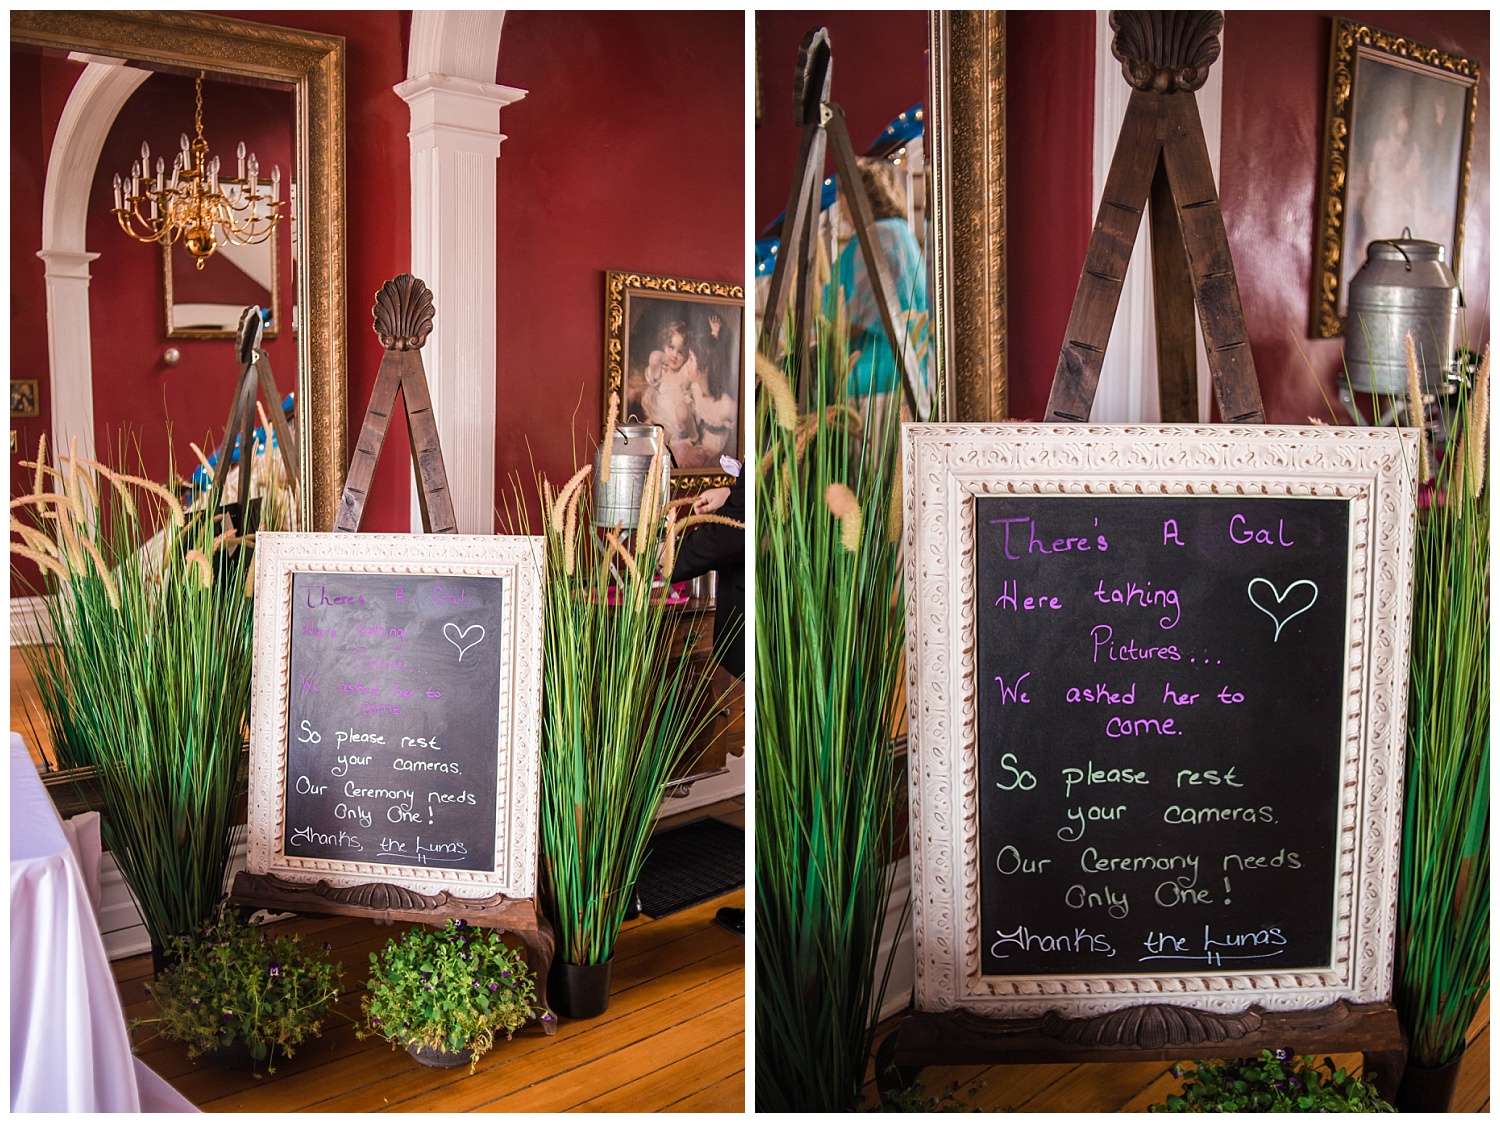 There's A Gal
Here taking
Pictures...
We asked her to
come.
So please rest
your cameras.
Our Ceremony needs
Only One!
Thanks, the Lunas
There's A Gal
Here taking
Pictures...
We asked her to
come.
So please rest
your cameras.
Our Ceremony needs
Only One!
Thanks, the Lunas